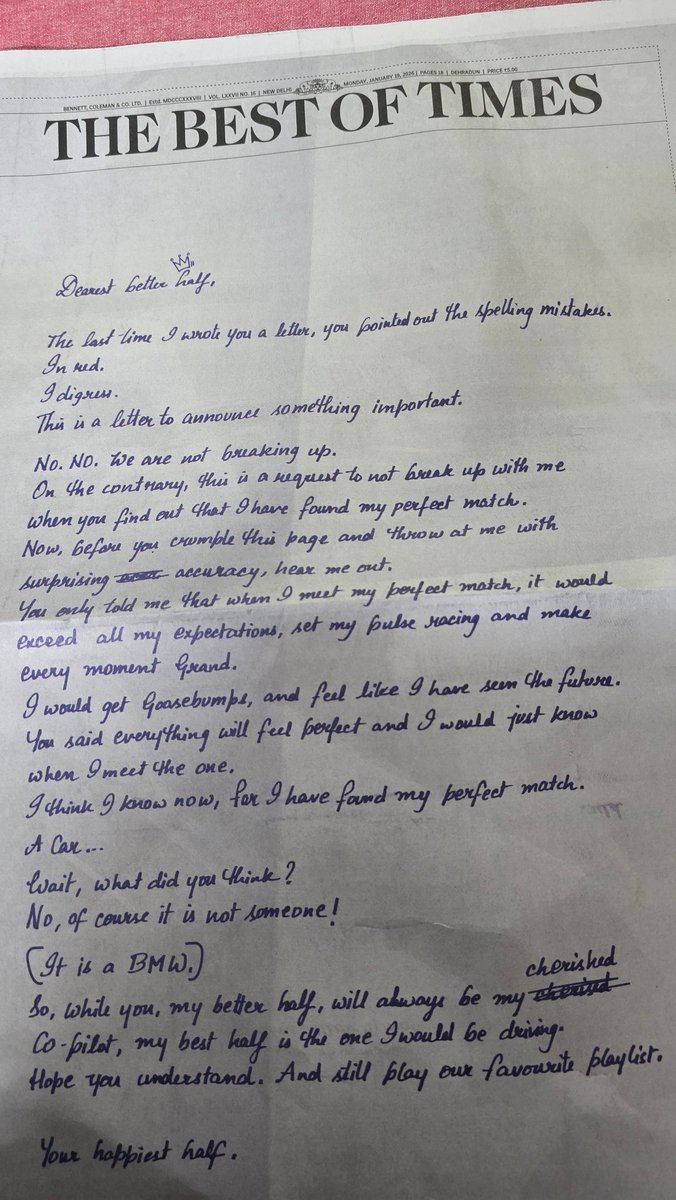 BENNETT, COLEMAN & CO. LTD. | Estd. MDCCCXXXVIII | VOL. LXXVII NO. 16 | NEW DELHI MONDAY, JANUARY 19, 2026 | PAGES 18 | DEHRADUN | PRICE ₹5.00
THE BEST OF TIMES
Dearest better half,
The last time I wrote you a letter, you pointed out the spelling mistakes.
In red.
I digress.
This is a letter to announce something important.
No. NO. We are not breaking up.
On the contrary, this is a request to not break up with me
when you find out that I have found my perfect match.
Now, before you crumple this page and throw at me with
surprising accuracy, hear me out.
You only told me that when I meet my perfect match, it would
exceed all my expectations, set my pulse racing and make
every moment Grand.
I would get Goosebumps, and feel like I have seen the future.
You said everything will feel perfect and I would just know
when I meet the one.
I think I know now, for I have found my perfect match.
A Car...
Wait, what did you think?
No, of course it is not someone!
(It is a BMW.)
cherished
So, while you, my better half, will always be my cherised
Co-pilot, my best half is the one I would be driving.
Hope you understand. And still play our favourite playlist.
Your happiest half.